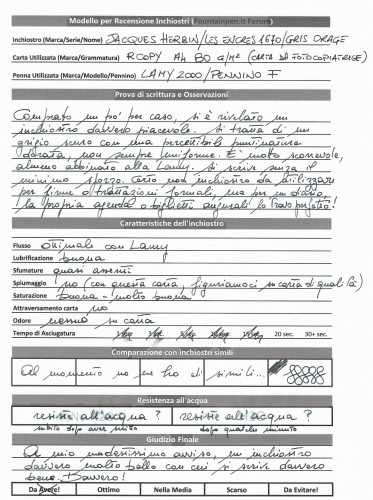 Modello per Recensione Inchiostri (Fountainpen.it Forum)
Inchiostro (Marca/Serie/Nome) JACQUES HERBIN/LES ENCRES 1670/GRIS ORAGE
Carta Utilizzata (Marca/Grammatura) RCOPY A4 80 g/m² (CARTA DA FOTOCOPIATRICE)
Penna Utilizzata (Marca/Modello/Pennino) LAMY 2000 / PENNINO F
Prova di scrittura e Osservazioni
Comprato un po' per caso, si è rivelato un
inchiostro davvero piacevole. Si tratta di un
grigio scuro con una percettibile puntinatura
dorata, non sempre uniforme. E' molto scorrevole,
almeno abbinato alla Lamy. Si scrive senza il
minimo sforzo. Certo non inchiostro da utilizzare
per firme o trattazioni formali, ma per un diario,
la propria agenda o biglietti augurali lo trovo perfetto!
Caratteristiche dell'inchiostro
Flusso ottimale con Lamy
Lubrificazione buona
Sfumature quasi assenti
Spiumaggio no (con questa carta, figuriamoci su carta di qualità)
Saturazione buona - molto buona
Attraversamento carta no
Odore nessuno su carta
Tempo di Asciugatura 20 sec. 30+ sec.
Comparazione con inchiostri simili
Al momento no ne ho di simili...
Resistenza all'acqua
resiste all'acqua ? resiste all'acqua ?
subito dopo aver scritto dopo qualche minuto
Giudizio Finale
A mio modestissimo avviso, un inchiostro
davvero molto bello con cui si scrive davvero
bene. Davvero!
Da Avere! Ottimo Nella Media Scarso Da Evitare!